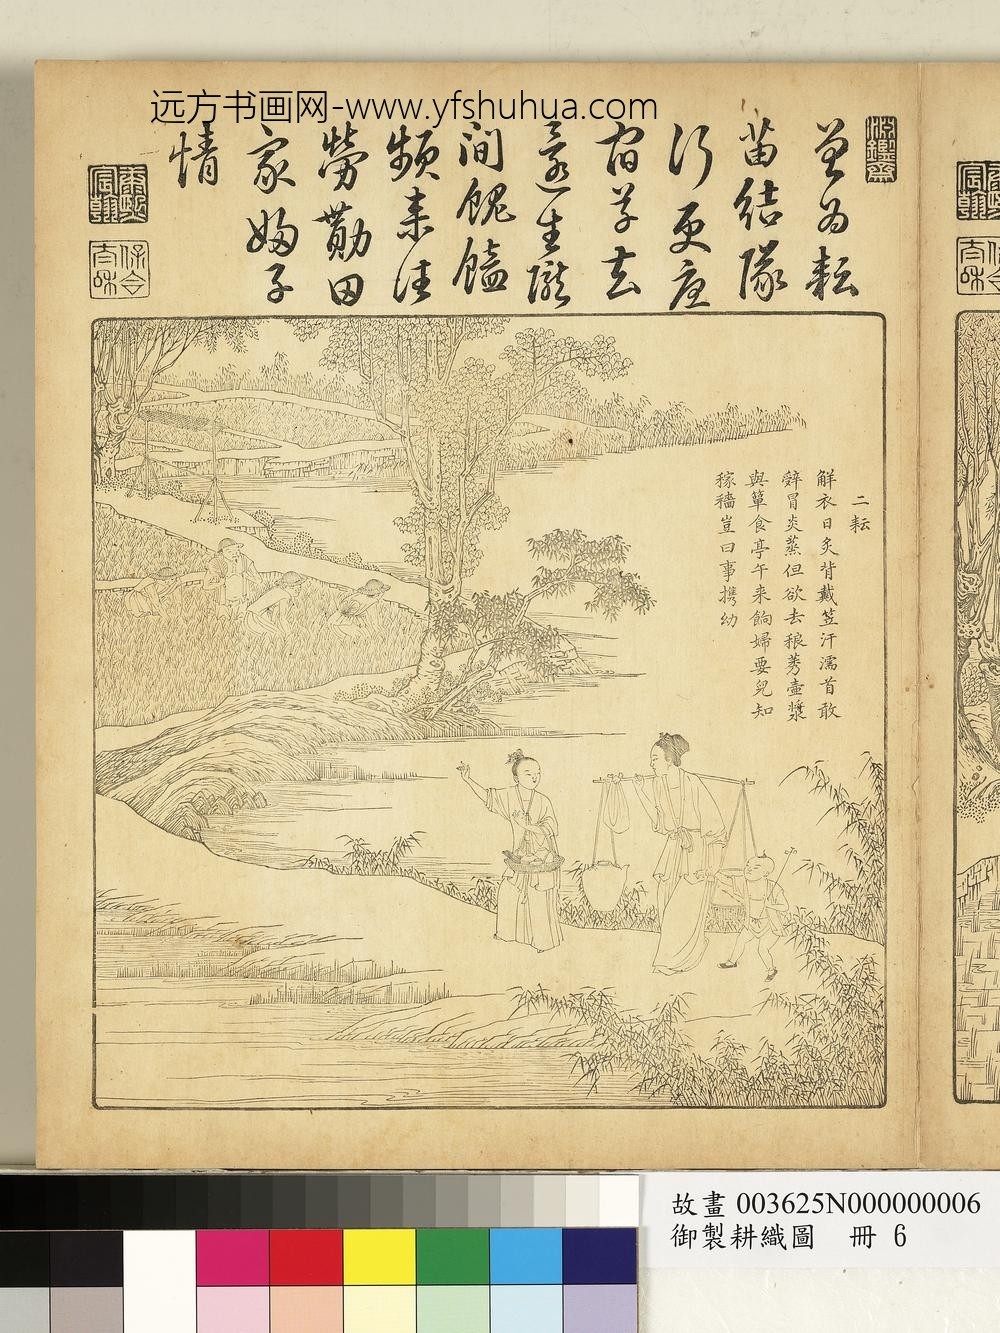 远方书画网-www.yfshuhua.com
淵鑑齋
曾为耘
苗結隊
行更应
宿草去
還生隴
間餽饁
頻来往
勞勩田
家婦子
情
康熙宸翰
保合太和
二耘
解衣日炙背戴笠汗濡首敢
辭冒炎蒸但欲去稂莠壺漿
與簞食亭午来餉婦要兒知
稼穡豈曰事携幼
故畫 003625N000000006
御製耕織圖 冊 6